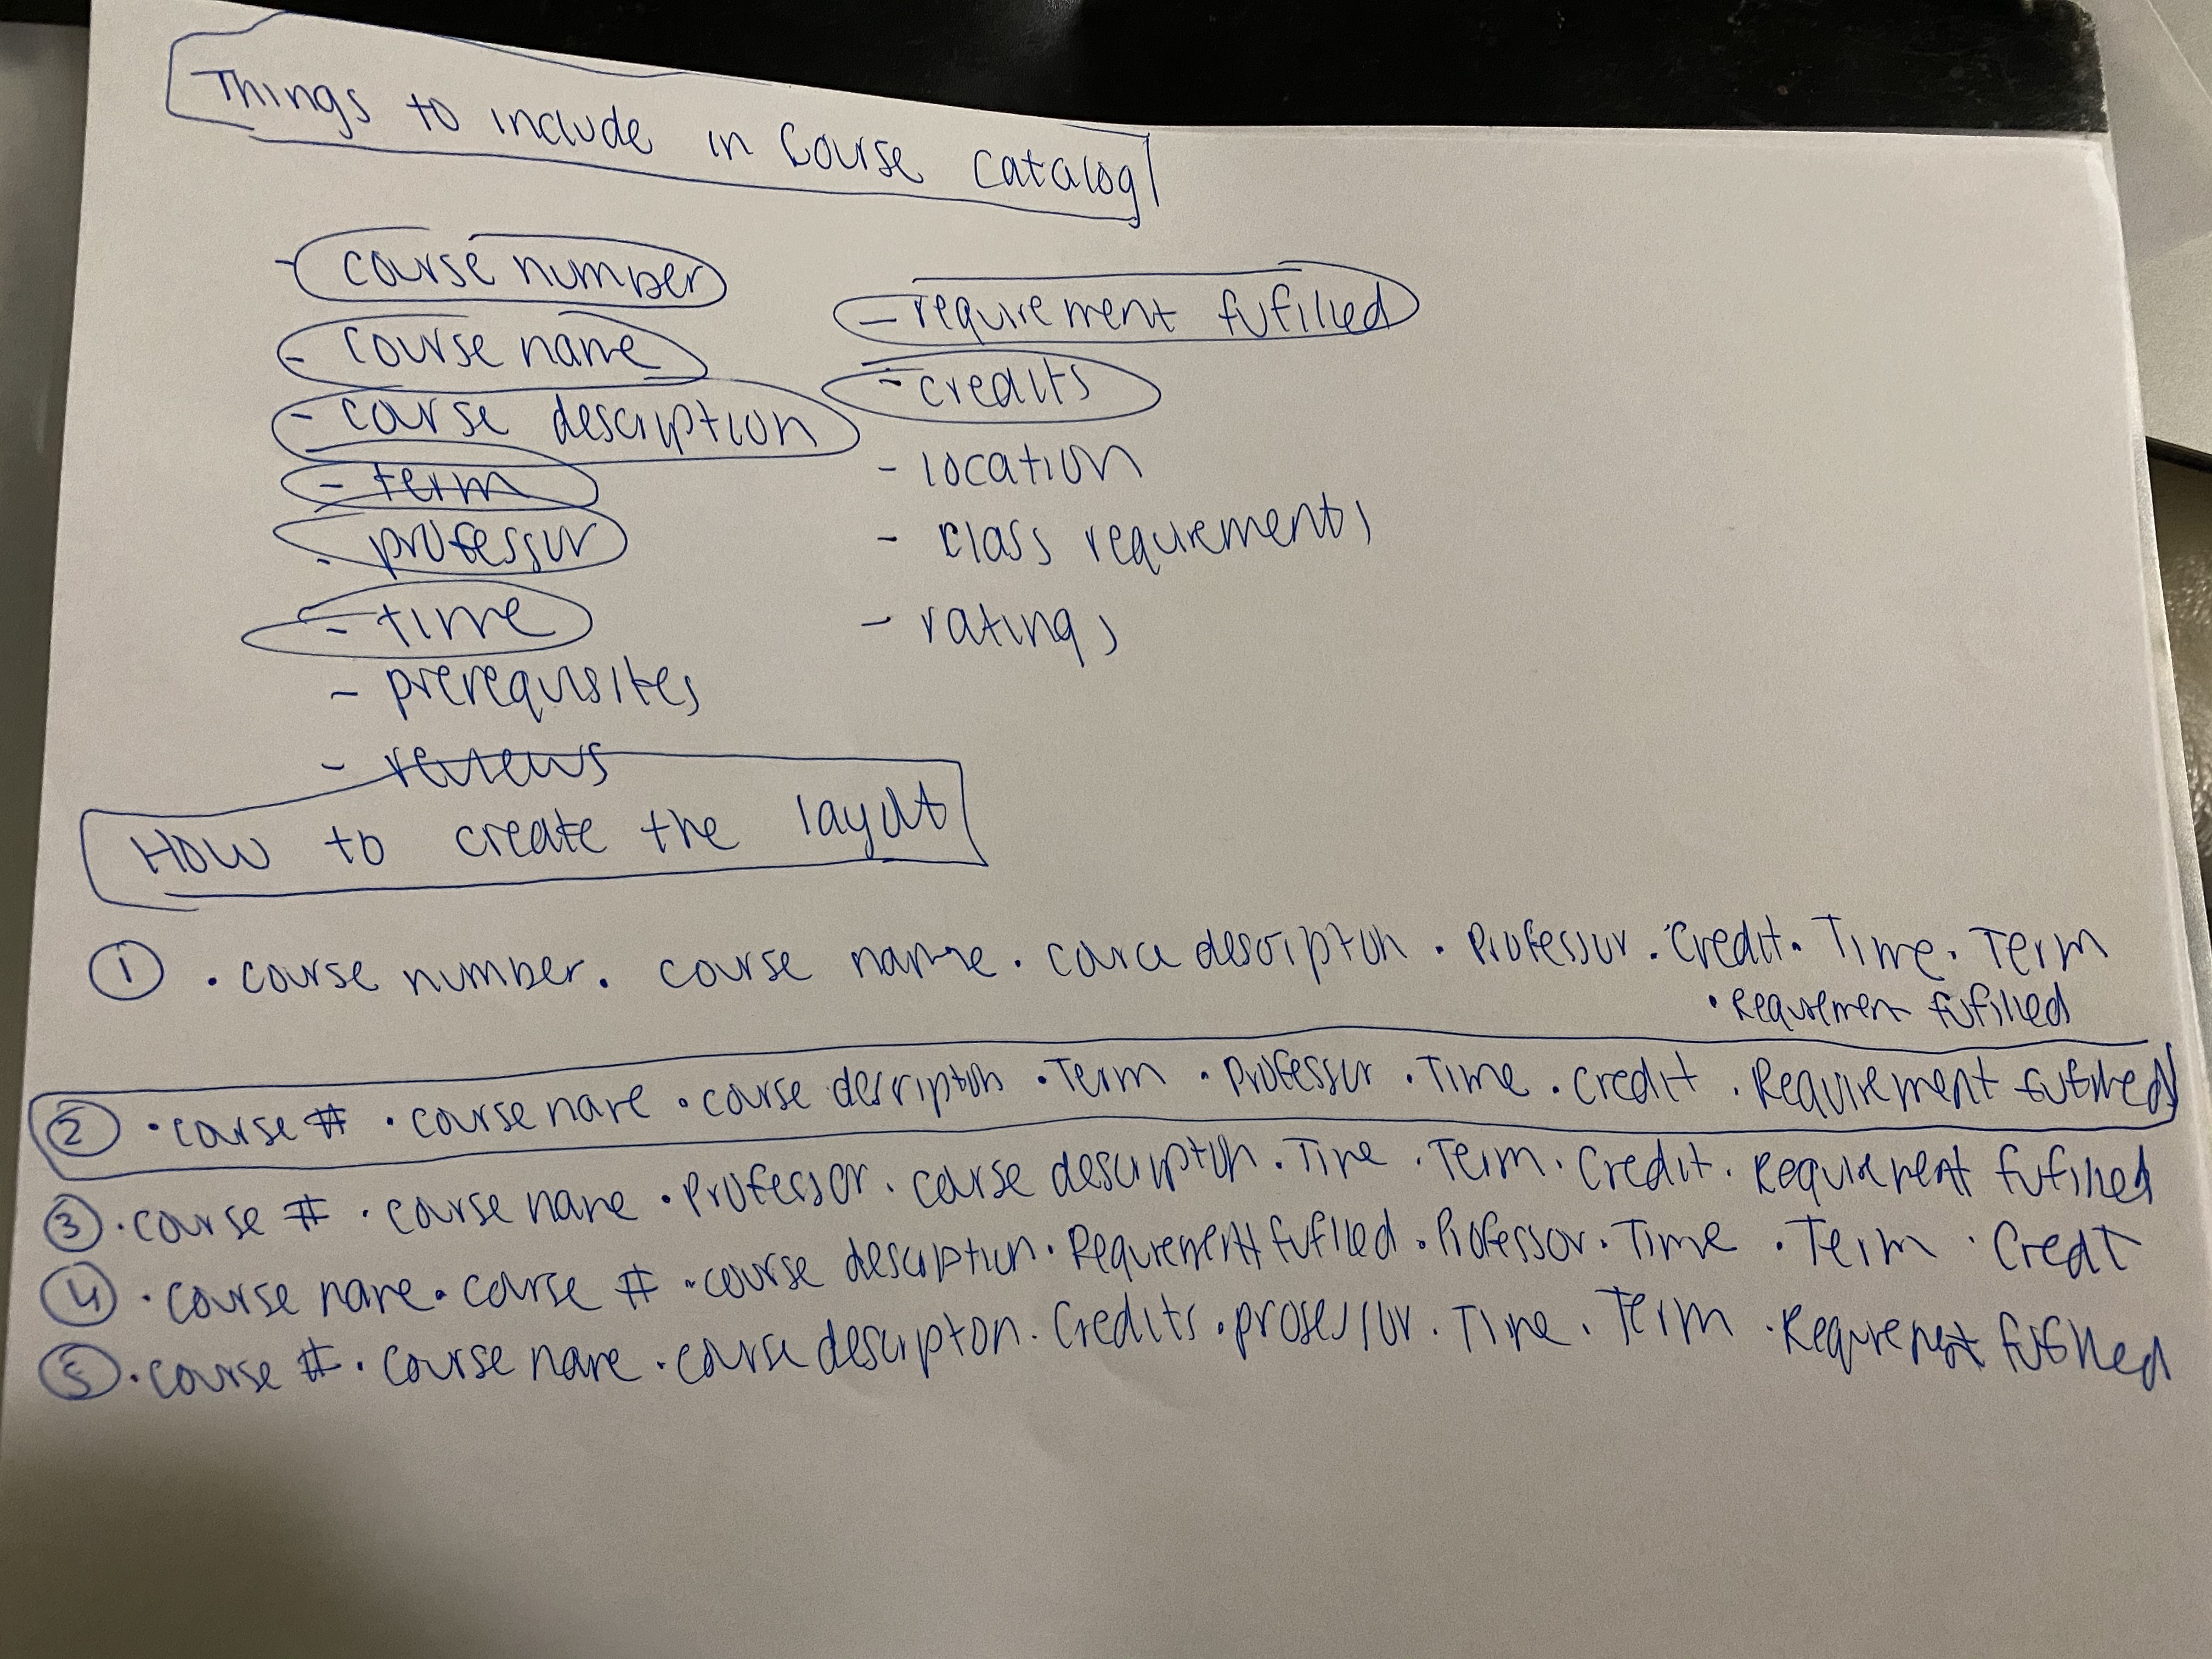 Things to include in Course Catalog
- course number
- course name
- course description
- term
- professor
- time
- prerequisites
- reviews
- requirement fufilled
- credits
- location
- class requirements
- ratings
How to create the layout
① • course number • course name • course description • Professor • Credit • Time • Term
• Requirement fufilled
② • course # • course name • course description • Term • Professor • Time • Credit • Requirement fufilled
③ • course # • course name • Professor • course description • Time • Term • Credit • Requirement fufilled
④ • course name • course # • course description • Requirement fufilled • Professor • Time • Term • Credit
⑤ • course # • course name • course description • Credits • professor • Time • Term • Requirement fufilled